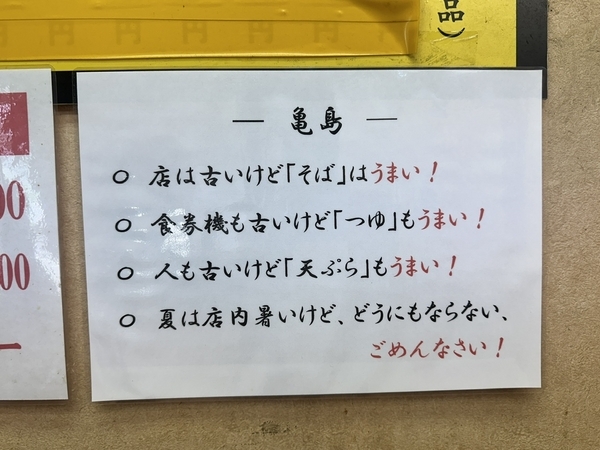 品）
円 円 円 円 円
00
00
― 亀島 ―
○ 店は古いけど「そば」はうまい！
○ 食券機も古いけど「つゆ」もうまい！
○ 人も古いけど「天ぷら」もうまい！
○ 夏は店内暑いけど、どうにもならない、
ごめんなさい！